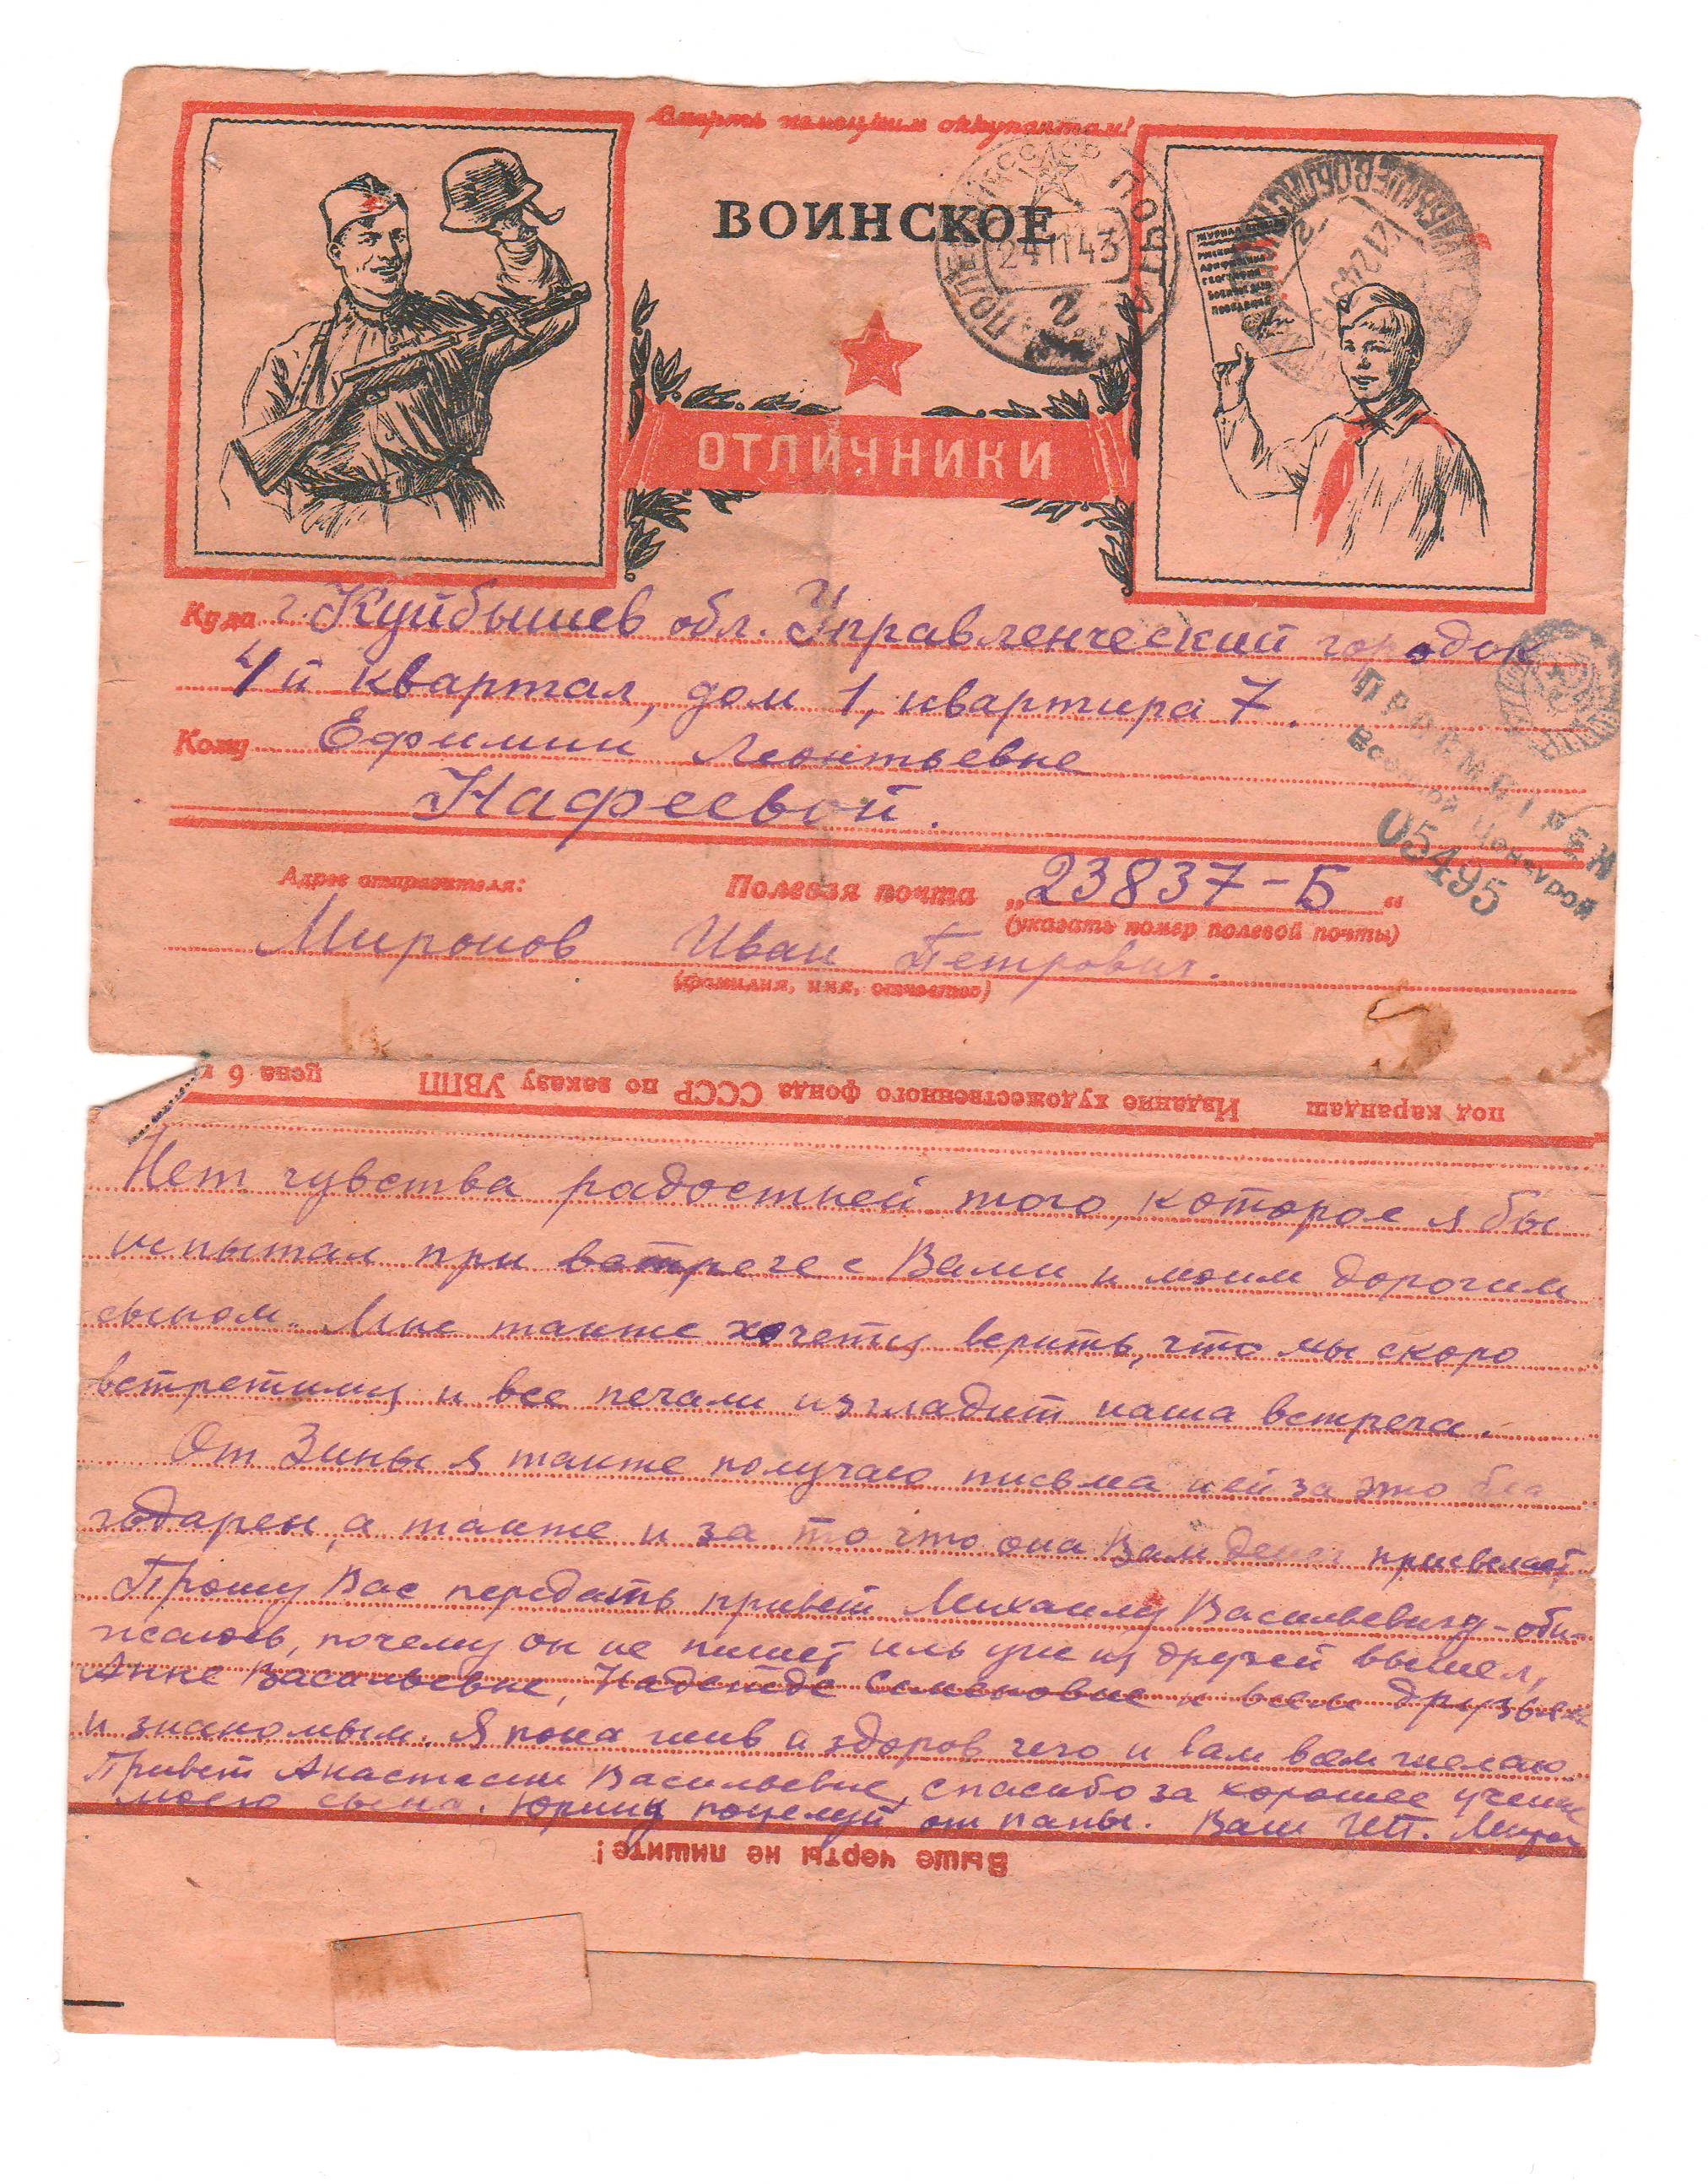 Смерть немецким оккупантам!
ВОИНСКОЕ
24 11 43
2
ОТЛИЧНИКИ
Куда г. Куйбышев обл. Управленческий городок
4й квартал, дом 1, квартира 7.
Кому Ефимии Леонтьевне
Нафеевой.
Военной Цензурой
05495
Адрес отправителя: Полевая почта „23837-Б“
(указать номер полевой почты)
Миронов Иван Петрович.
(фамилия, имя, отчество)
под карандаш Издание художественного фонда СССР по заказу УВПП цена 6
Нет чувства радостней того, которое я бы
испытал при встрече с Вами и моим дорогим
сыном. Мне также хочется верить, что мы скоро
встретимся и все печали изгладит наша встреча.
От Зины я также получаю письма и ей за это бла
годарен, а также и за то что она Вам денег присылает.
Прошу Вас передать привет Михаилу Васильевичу - оби-
жаюсь, почему он не пишет иль уже из друзей вышел,
Анне Васильевне, Надежде Семеновне и всем друзьям
и знакомым. Я пока жив и здоров чего и вам всем желаю.
Привет Анастасии Васильевне, спасибо за хорошее учение
моего сына. Юрочку поцелуй от папы. Ваш ИП. Мирон
Выше черты не пишите!